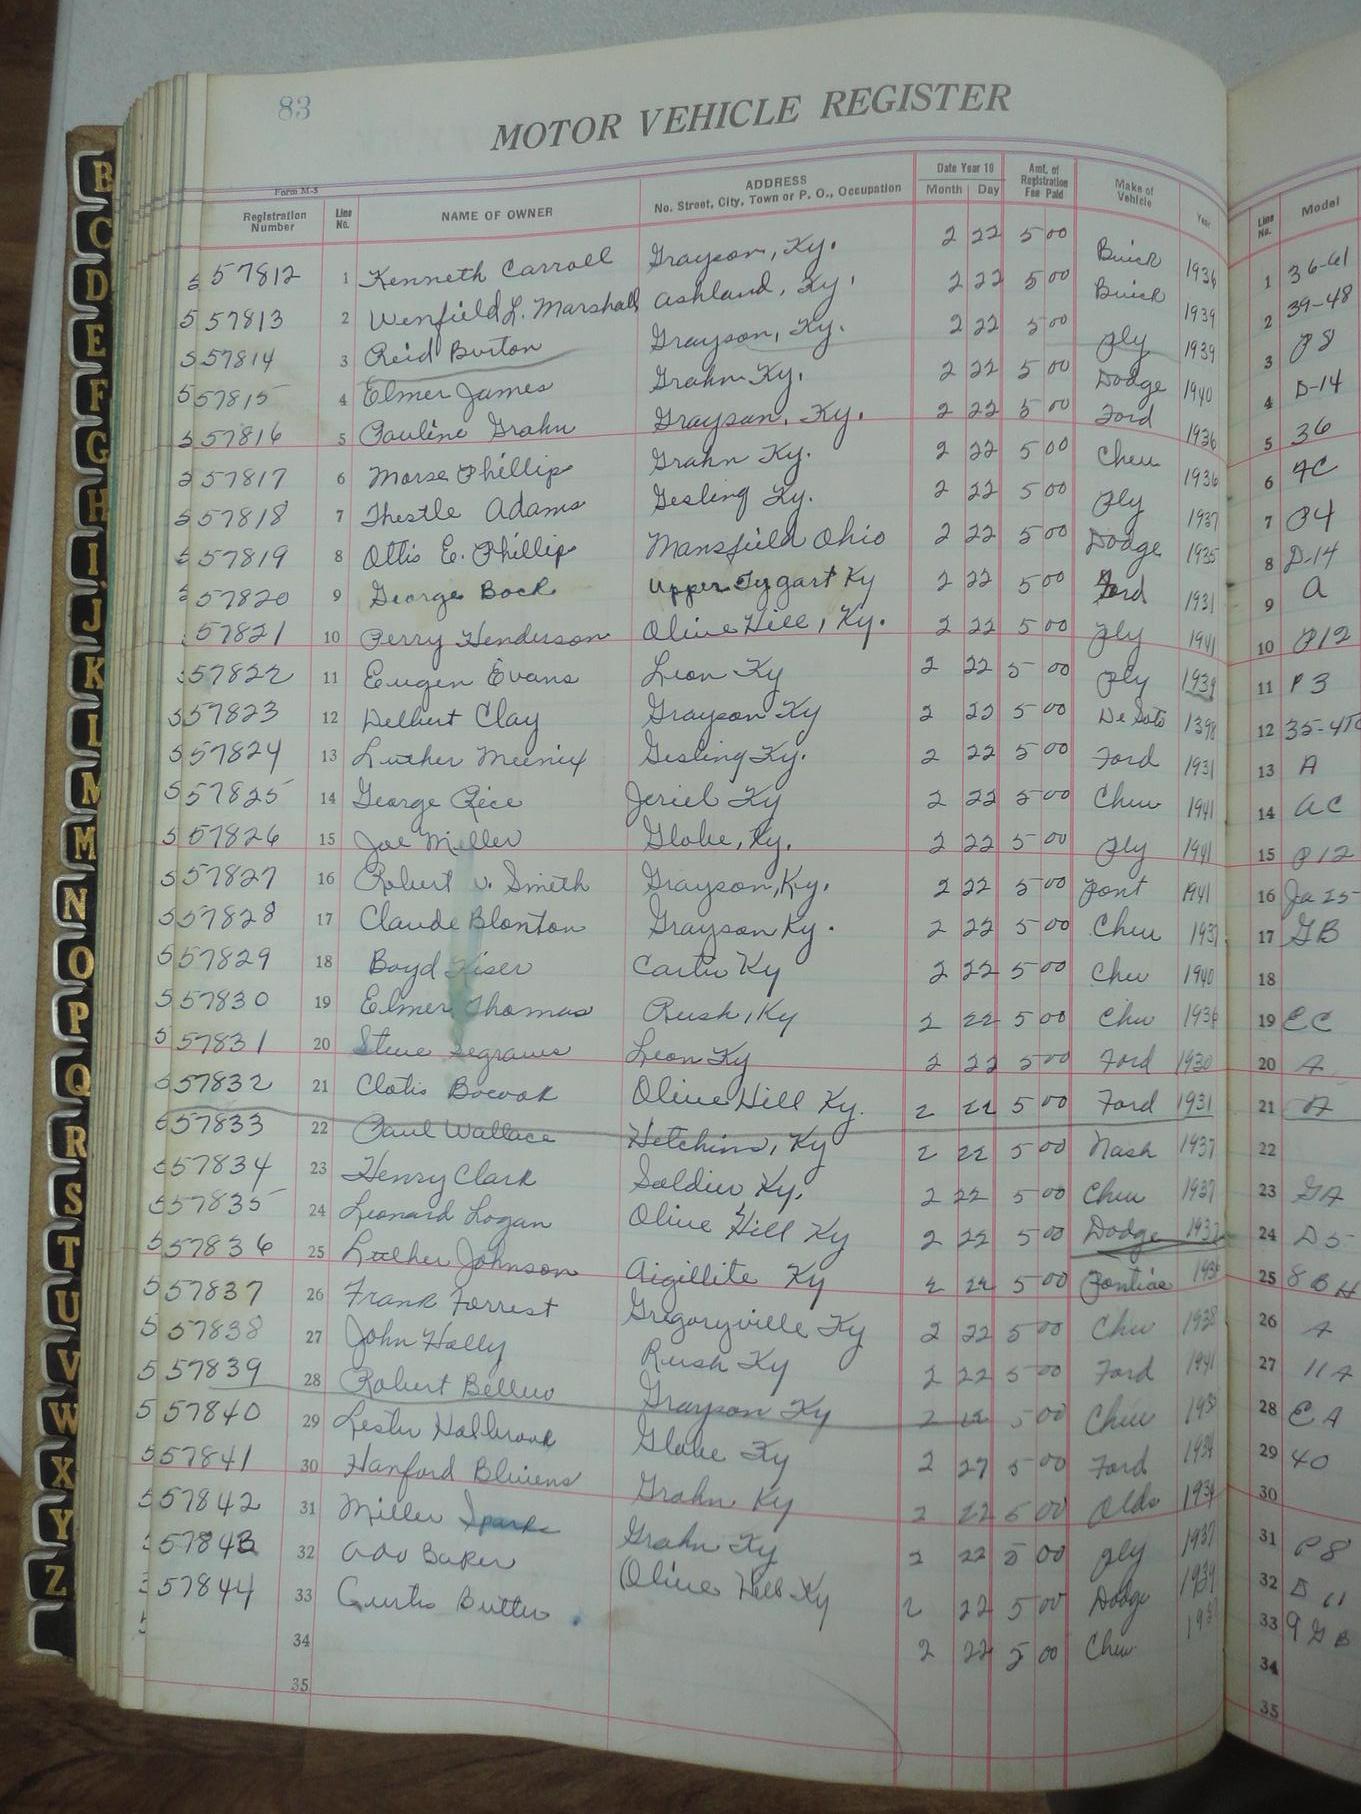 83
MOTOR VEHICLE REGISTER
Form M-5
Registration Number Line No. NAME OF OWNER ADDRESS No. Street, City, Town or P. O., Occupation Date Year 19 Month Day Amt. of Registration Fee Paid Make of Vehicle Year Line No. Model
557812 1 Kenneth Carroll Grayson, Ky. 2 22 5 00 Buick 1936 1 36-61
557813 2 Winfield L. Marshall Ashland, Ky. 2 22 5 00 Buick 1939 2 39-48
557814 3 Reid Burton Grayson, Ky. 2 22 5 00 Ply 1939 3 P8
557815 4 Elmer James Grahn Ky. 2 22 5 00 Dodge 1940 4 D-14
557816 5 Pauline Grahn Grayson, Ky. 2 22 5 00 Ford 1936 5 36
557817 6 Morse Phillips Grahn Ky. 2 22 5 00 Chev 1936 6 FC
557818 7 Thestle Adams Gesling Ky. 2 22 5 00 Ply 1937 7 P4
557819 8 Ottis E. Phillips Mansfield Ohio 2 22 5 00 Dodge 1935 8 D-14
557820 9 George Bock Upper Tygart Ky 2 22 5 00 Ford 1931 9 A
57821 10 Perry Henderson Olive Hill, Ky. 2 22 5 00 Ply 1941 10 P12
557822 11 Eugen Evans Leon Ky 2 22 5 00 Ply 1939 11 P3
557823 12 Delbert Clay Grayson Ky 2 22 5 00 De Soto 1398 12
557824 13 Luther Gesling Ky. 2 22 5 00 Ford 1931 13 A
557825 14 George Rice Jeriel Ky 2 22 5 00 Chev 1941 14 AC
557826 15 Joe Miller Globe, Ky. 2 22 5 00 Ply 1941 15 P12
557827 16 Robert V. Smith Grayson, Ky. 2 22 5 00 Pont 1941 16 Ja 25
557828 17 Claude Blonton Grayson Ky. 2 22 5 00 Chev 1937 17 GB
557829 18 Boyd Kiser Carter Ky 2 22 5 00 Chev 1940 18
557830 19 Elmer Thomas Rush, Ky 2 22 5 00 Chev 1936 19 EC
557831 20 Steve Segraves Leon Ky 2 22 5 00 Ford 1930 20 A
557832 21 Clotis Bocook Olive Hill Ky. 2 22 5 00 Ford 1931 21 A
557833 22 Paul Wallace Hitchins, Ky 2 22 5 00 Nash 1937 22
557834 23 Henry Clark Soldier Ky. 2 22 5 00 Chev 1937 23 GA
557835 24 Leonard Logan Olive Hill Ky 2 22 5 00 Dodge 1937 24 D5
557836 25 Luther Johnson Aigillite Ky 2 22 5 00 Pontiac 25
557837 26 Frank Forrest Gregoryville Ky 2 22 5 00 Chev 1938 26 A
557838 27 John Holly Rush Ky 2 22 5 00 Ford 1941 27 11A
557839 28 Robert Bellew Grayson Ky 2 22 5 00 Chev 28 EA
557840 29 Lester Holbrook Globe Ky 2 27 5 00 Ford 1934 29 40
557841 30 Hanford Blivens Grahn Ky 2 22 5 00 Olds 1934 30
557842 31 Miller Sparks Grahn Ky 2 22 5 00 Ply 1937 31 P8
57843 32 Baker Olive Hill Ky 2 22 5 00 Dodge 1939 32 D 11
57844 33 Curtis Butter 2 22 5 00 Chev 1937 33 9 GB
34 34
35 35
B
C
D
E
F
G
H
I
J
K
L
M
M
N
O
P
Q
R
S
T
U
V
W
X
Y
Z